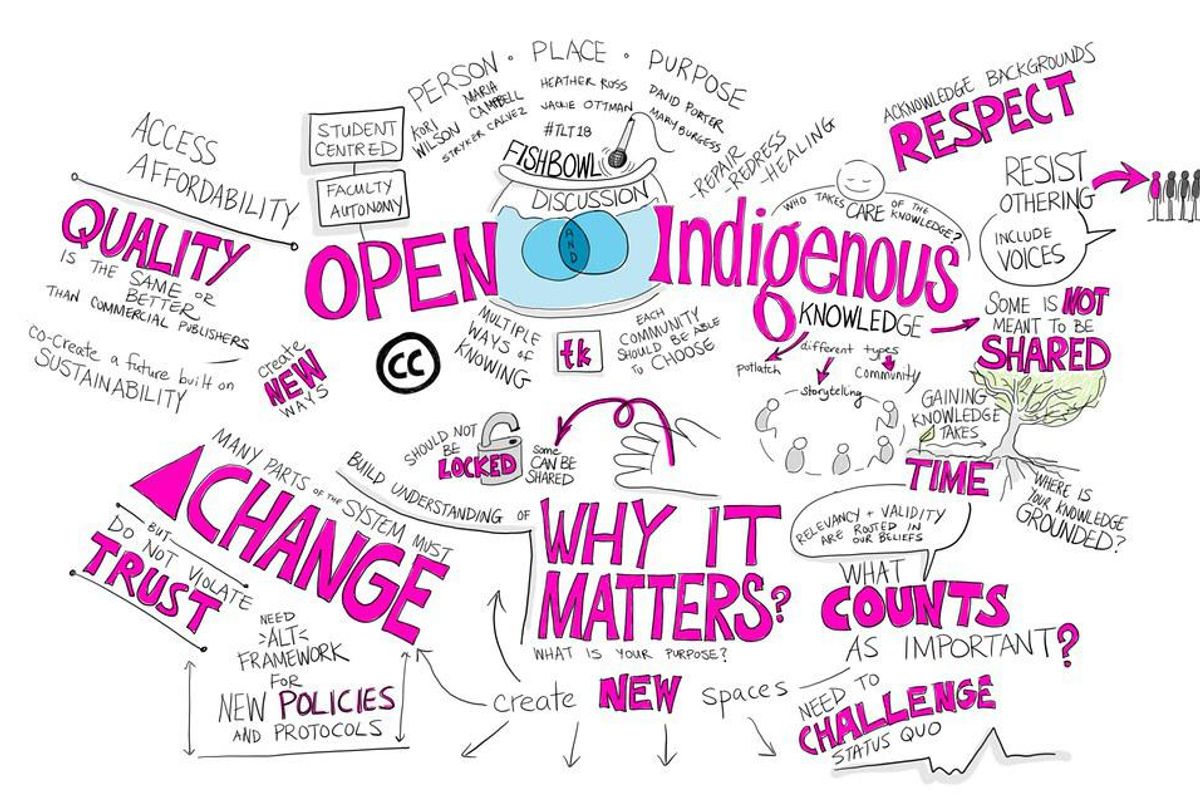 PERSON · PLACE · PURPOSE
KORI WILSON
MARIA CAMPBELL
STRYKER CALVEZ
HEATHER ROSS
JACKIE OTTMAN
#TLT18
DAVID PORTER
MARY BURGESS
FISHBOWL
DISCUSSION
STUDENT
CENTRED
FACULTY
AUTONOMY
ACCESS
AFFORDABILITY
QUALITY
IS THE SAME OR
BETTER
THAN COMMERCIAL PUBLISHERS
CO-Create a future built on
SUSTAINABILITY
create
NEW
WAYS
OPEN
AND
Indigenous
KNOWLEDGE
CC
MULTIPLE
WAYS OF
KNOWING
tk
EACH
COMMUNITY
SHOULD BE ABLE
TO CHOOSE
-REPAIR
-REDRESS
-HEALING
WHO TAKES CARE OF THE KNOWLEDGE?
ACKNOWLEDGE BACKGROUNDS
RESPECT
RESIST
OTHERING
INCLUDE
VOICES
SOME IS NOT
MEANT TO BE
SHARED
different types
Potlatch
Storytelling
Community
GAINING
KNOWLEDGE
TAKES
TIME
WHERE IS
YOUR KNOWLEDGE
GROUNDED?
SHOULD NOT
BE
LOCKED
Some
CAN BE
SHARED
MANY PARTS OF THE SYSTEM MUST
CHANGE
BUT
DO NOT VIOLATE
TRUST
NEED
ALT
FRAMEWORK
FOR
NEW POLICIES
AND PROTOCOLS
BUILD UNDERSTANDING OF
WHY IT
MATTERS?
WHAT IS YOUR PURPOSE?
create NEW spaces
RELEVANCY + VALIDITY
ARE ROOTED IN
OUR BELIEFS
WHAT
COUNTS
AS IMPORTANT?
NEED TO
CHALLENGE
STATUS QUO